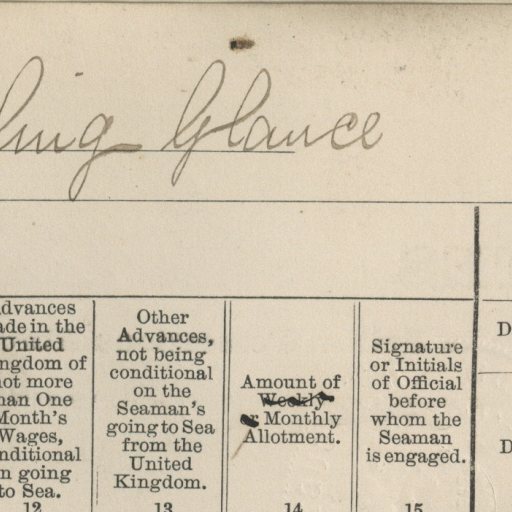 Glance
Advances
made in the
United
Kingdom of
not more
than One
Month's
Wages,
conditional
on going
to Sea.
12
Other
Advances,
not being
conditional
on the
Seaman's
going to Sea
from the
United
Kingdom.
13
Amount of
Weekly
or Monthly
Allotment.
14
Signature
or Initials
of Official
before
whom the
Seaman
is engaged.
15
D
D